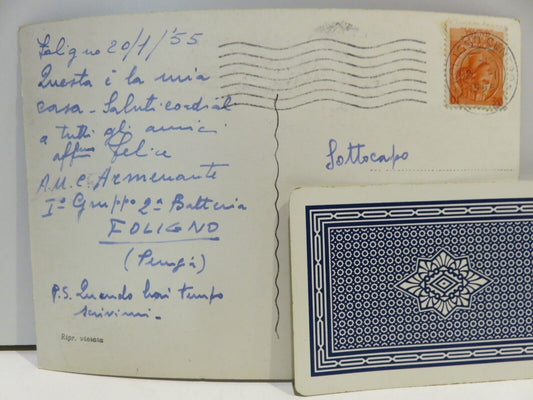 Foligno 20/1/'55
Questa è la mia
casa - Saluti cordial
a tutti gli amici
aff.mo Felice
A.U.C. Armenante
Iº Gruppo 2ª Batteria
FOLIGNO
(Perugia)
P.S. Quando hai tempo
scrivimi -
Ripr. vietata
Sottocapo